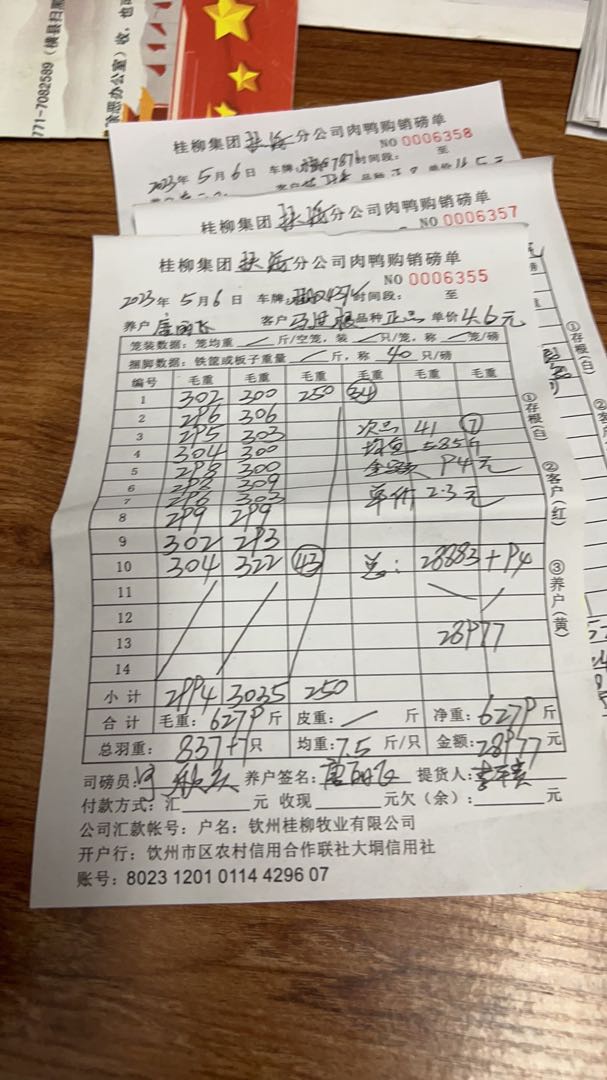 771-7082589（横县扫黑
除恶办公室）收，也
桂柳集团 扶 分公司肉鸭购销磅单
NO 0006358
2023年5月6日 车牌: 时间段: 至
桂柳集团 扶 分公司肉鸭购销磅单
NO 0006357
桂柳集团 扶 分公司肉鸭购销磅单
NO 0006355
2023年5月6日 车牌: 时间段: 至
养户 客户 品种 正品 单价 4.6元
笼装数据: 笼均重 斤/空笼, 装 只/笼, 称 笼/磅
捆脚数据: 铁筐或板子重量 斤, 称 40 只/磅
编号 毛重 毛重 毛重 毛重 毛重 毛重
1 302 300 250 34
2 296 306
3 295 303 次品 41 7
4 304 300 均重 5.85斤
5 298 300 94元
6 298 309
7 296 303 单价 2.3元
8 299 299
9 302 293
10 304 322 43 总: 28883+94
11
12
13 28977
14
小计 2994 3035 250
合计 毛重: 6279斤 皮重: 斤 净重: 6279斤
总羽重: 837+7只 均重: 7.5斤/只 金额: 28977元
司磅员: 养户签名: 提货人:
付款方式: 汇 元 收现 元欠（余）: 元
公司汇款帐号: 户名: 钦州桂柳牧业有限公司
开户行: 饮州市区农村信用合作联社大垌信用社
账号: 8023 1201 0114 4296 07
①存根(白)
②客户(红)
③养户(黄)
①存根(白)